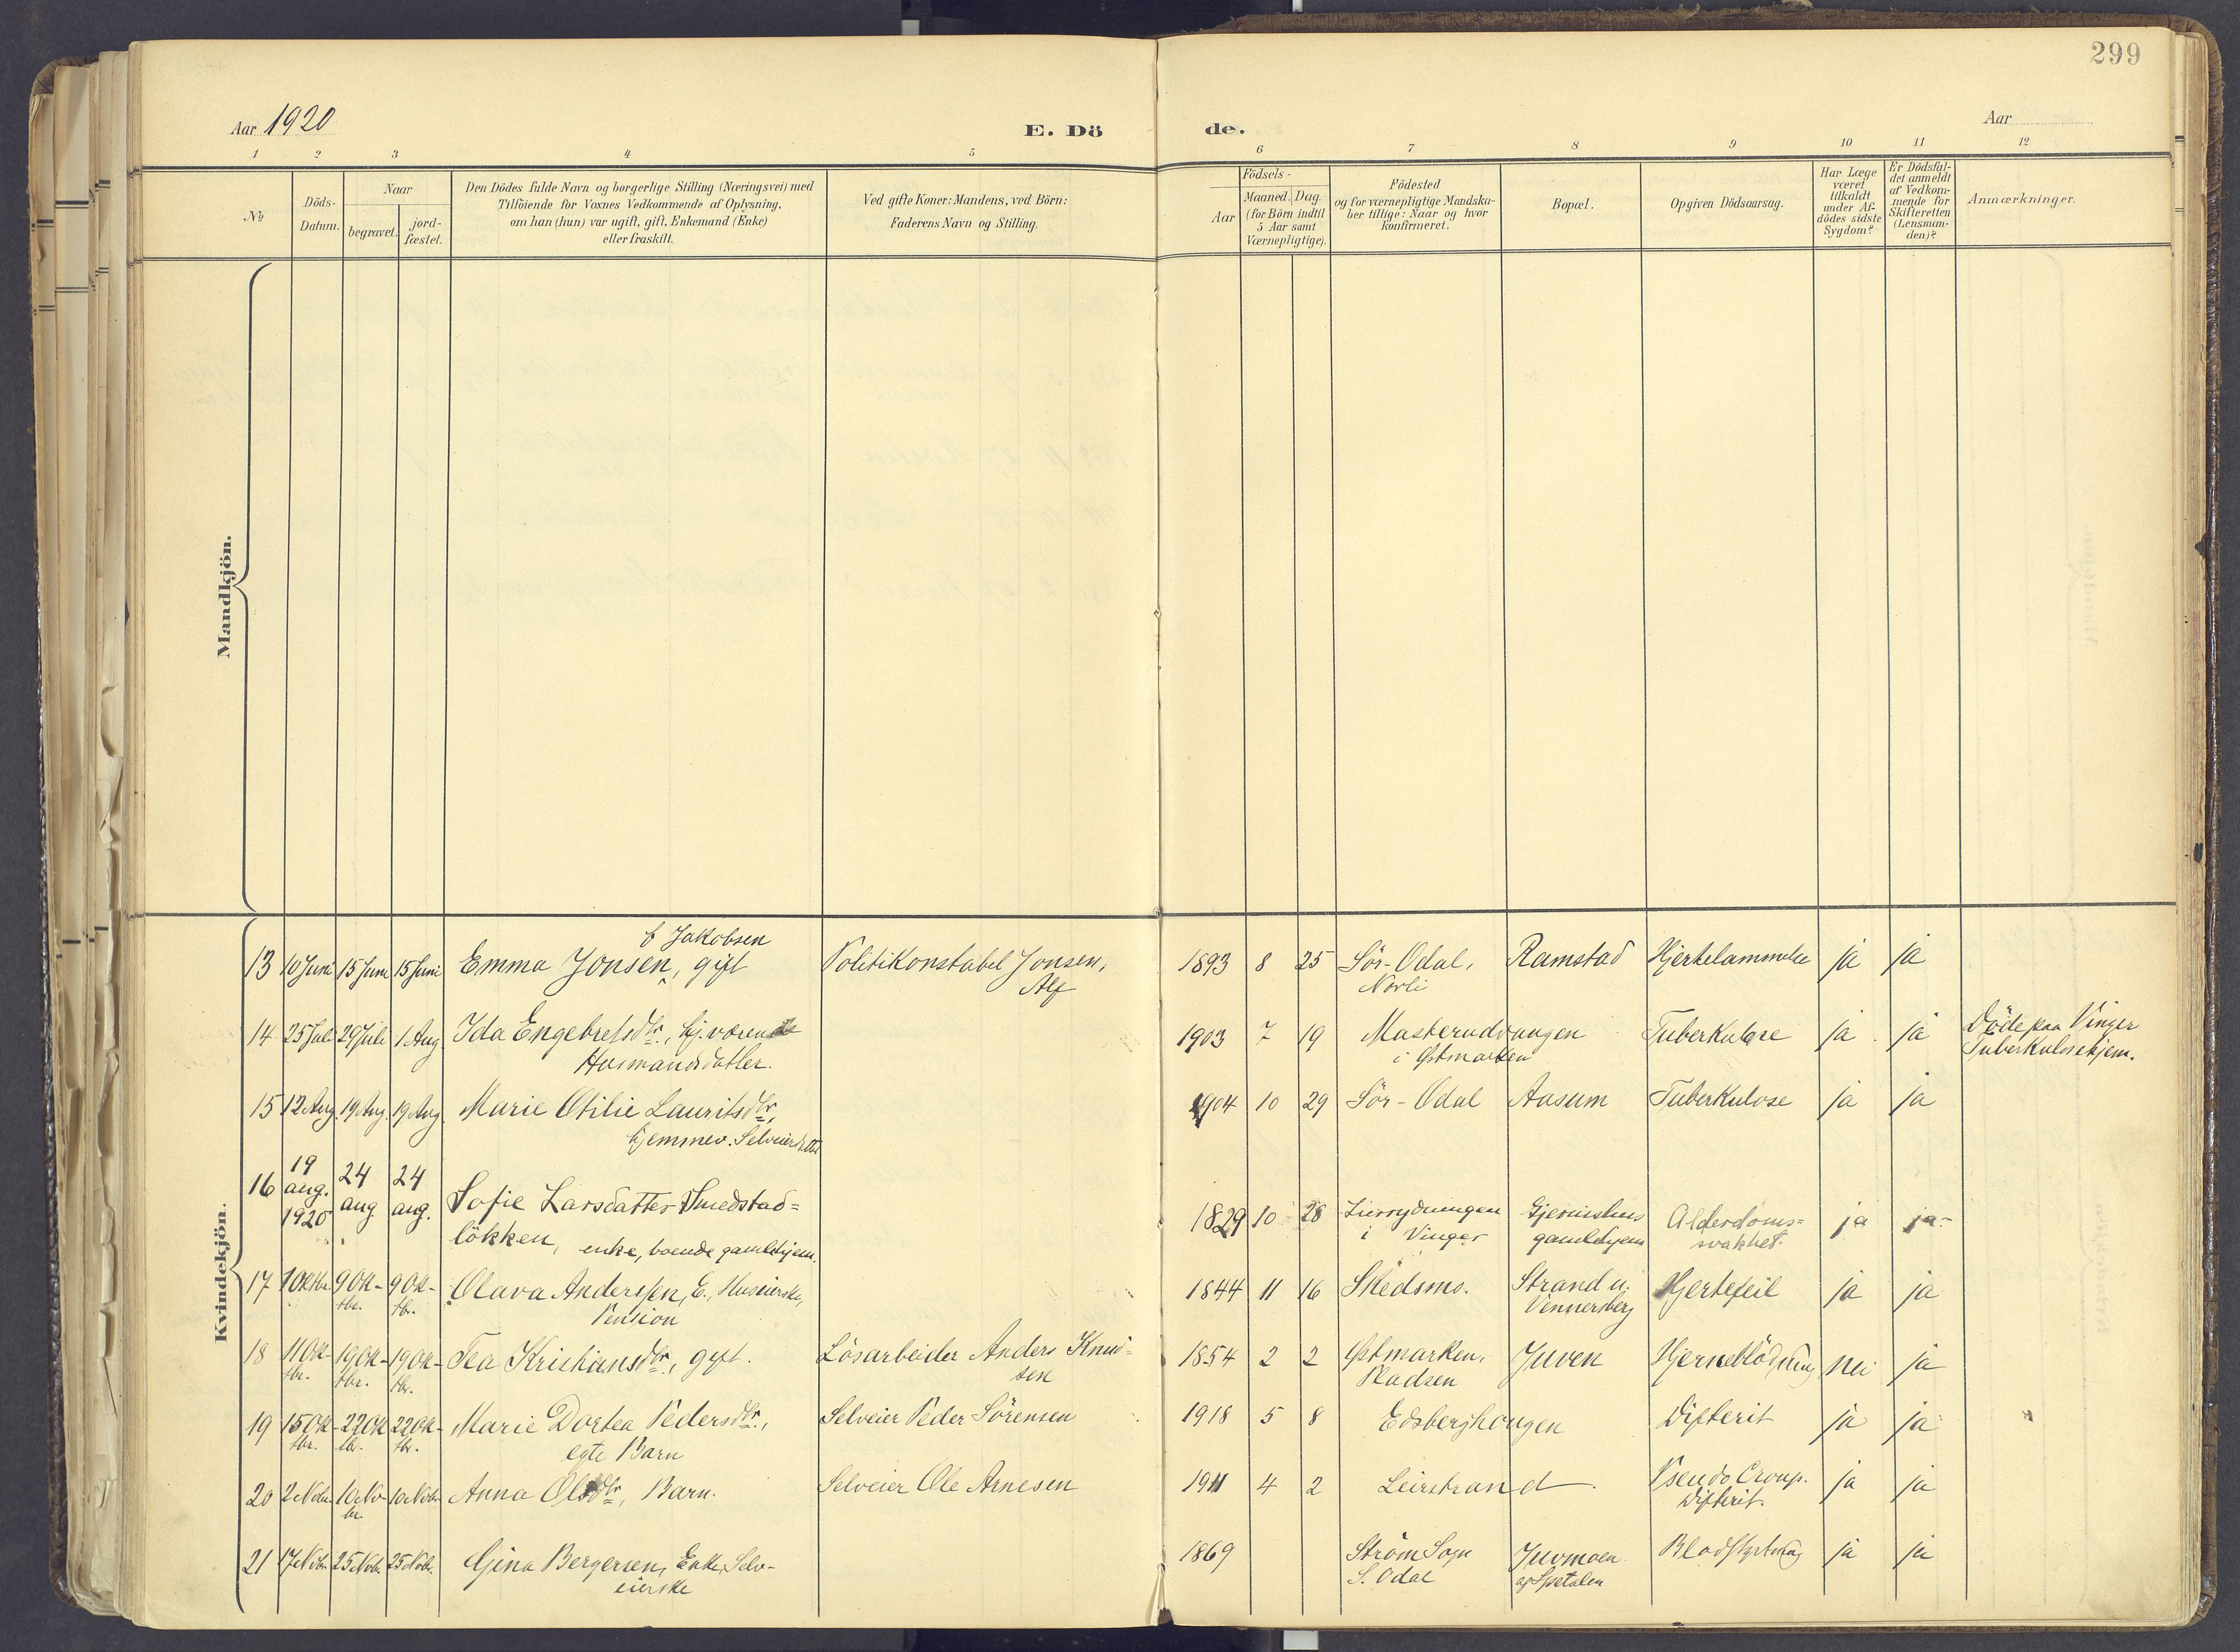 299
Aar 1920
E. Dö
de.
Aar
1 2 3 4 5 6 7 8 9 10 11 12
No
Döds-
Datum.
Naar
begravet.
jord-
fæstet.
Den Dödes fulde Navn og borgerlige Stilling (Næringsvei) med
Tilföiende for Voxnes Vedkommende af Oplysning,
om han (hun) var ugift, gift, Enkemand (Enke)
eller fraskilt.
Ved gifte Koner: Mandens, ved Börn:
Faderens Navn og Stilling.
Födsels-
Aar
Maaned. Dag.
(for Börn indtil
5 Aar samt
Værnepligtige).
Födested
og for værnepligtige Mandska-
ber tillige: Naar og hvor
konfirmeret.
Bopæl.
Opgiven Dödsaarsag.
Har Læge
været
tilkaldt
under Af-
dödes sidste
Sygdom?
Er Dödsfal-
det anmeldt
af Vedkom-
mende for
Skifteretten
(Lensman-
den)?
Anmærkninger.
Mandkjön.
Kvindekjön.
f Jakobsen
13 10 Juni 15 Juni 15 Juni Emma Jonsen, gift Politikonstabel Jonsen, 1893 8 25 Sör-Odal, Ramstad Hjertelammelse ja ja
Alf Norli
14 25 Juli 29 Juli 1 Aug. Ida Engebretsdtr., hj. værende 1903 7 19 Masterudvangen Tuberkulose ja ja Döde paa Vinger
Husmandsdatter. i Östmarken Tuberkulosehjem.
15 12 Aug. 19 Aug. 19 Aug. Marie Otilie Lauritsdtr., 1904 10 29 Sör-Odal Aasum Tuberkulose ja ja
hjemmev. Selveierdatter
16 19 aug. 1920 24 aug 24 aug. Sofie Larsdatter Smedstad= 1829 10 28 Lierrydningen Gjemshus Alderdoms= ja ja-
lökken, enke, boende gamlehjem. i Vinger gamlehjem svakhet.
17 1 Oktbr. 9 Ok- 9 Ok- Olava Anderssen, E., Huseierske, 1844 11 16 Skedsmo. Strand u. Hjertefeil ja ja
tbr. tbr. Pension Vennersberg
18 11 Ok- 19 Ok- 19 Ok- Tea Kristiansdtr., gift. Lösarbeider Anders Knud- 1854 2 2 Östmarken, Juven Hjerneblödning nei ja
tbr. tbr. tbr. sen Pladsen
19 15 Ok- 22 Ok- 22 Ok- Marie Dortea Pedersdtr., Selveier Peder Sörensen 1918 5 8 Edsberghougen Difterit ja ja
tbr. tbr. tbr. egte Barn
20 2 Novbr. 10 Nov- 10 Novbr. Anna Olsdtr., Barn. Selveier Ole Arnesen 1911 4 2 Leirstrand Pseudo Croup. ja ja
br. Difterit.
21 17 Novbr. 25 Novbr. 25 Novbr. Gina Bergersen, Enke, Selv- 1869 Ström Sogn Juvmoen Blodstyrtning ja ja
eierske S. Odal ap Spetalen